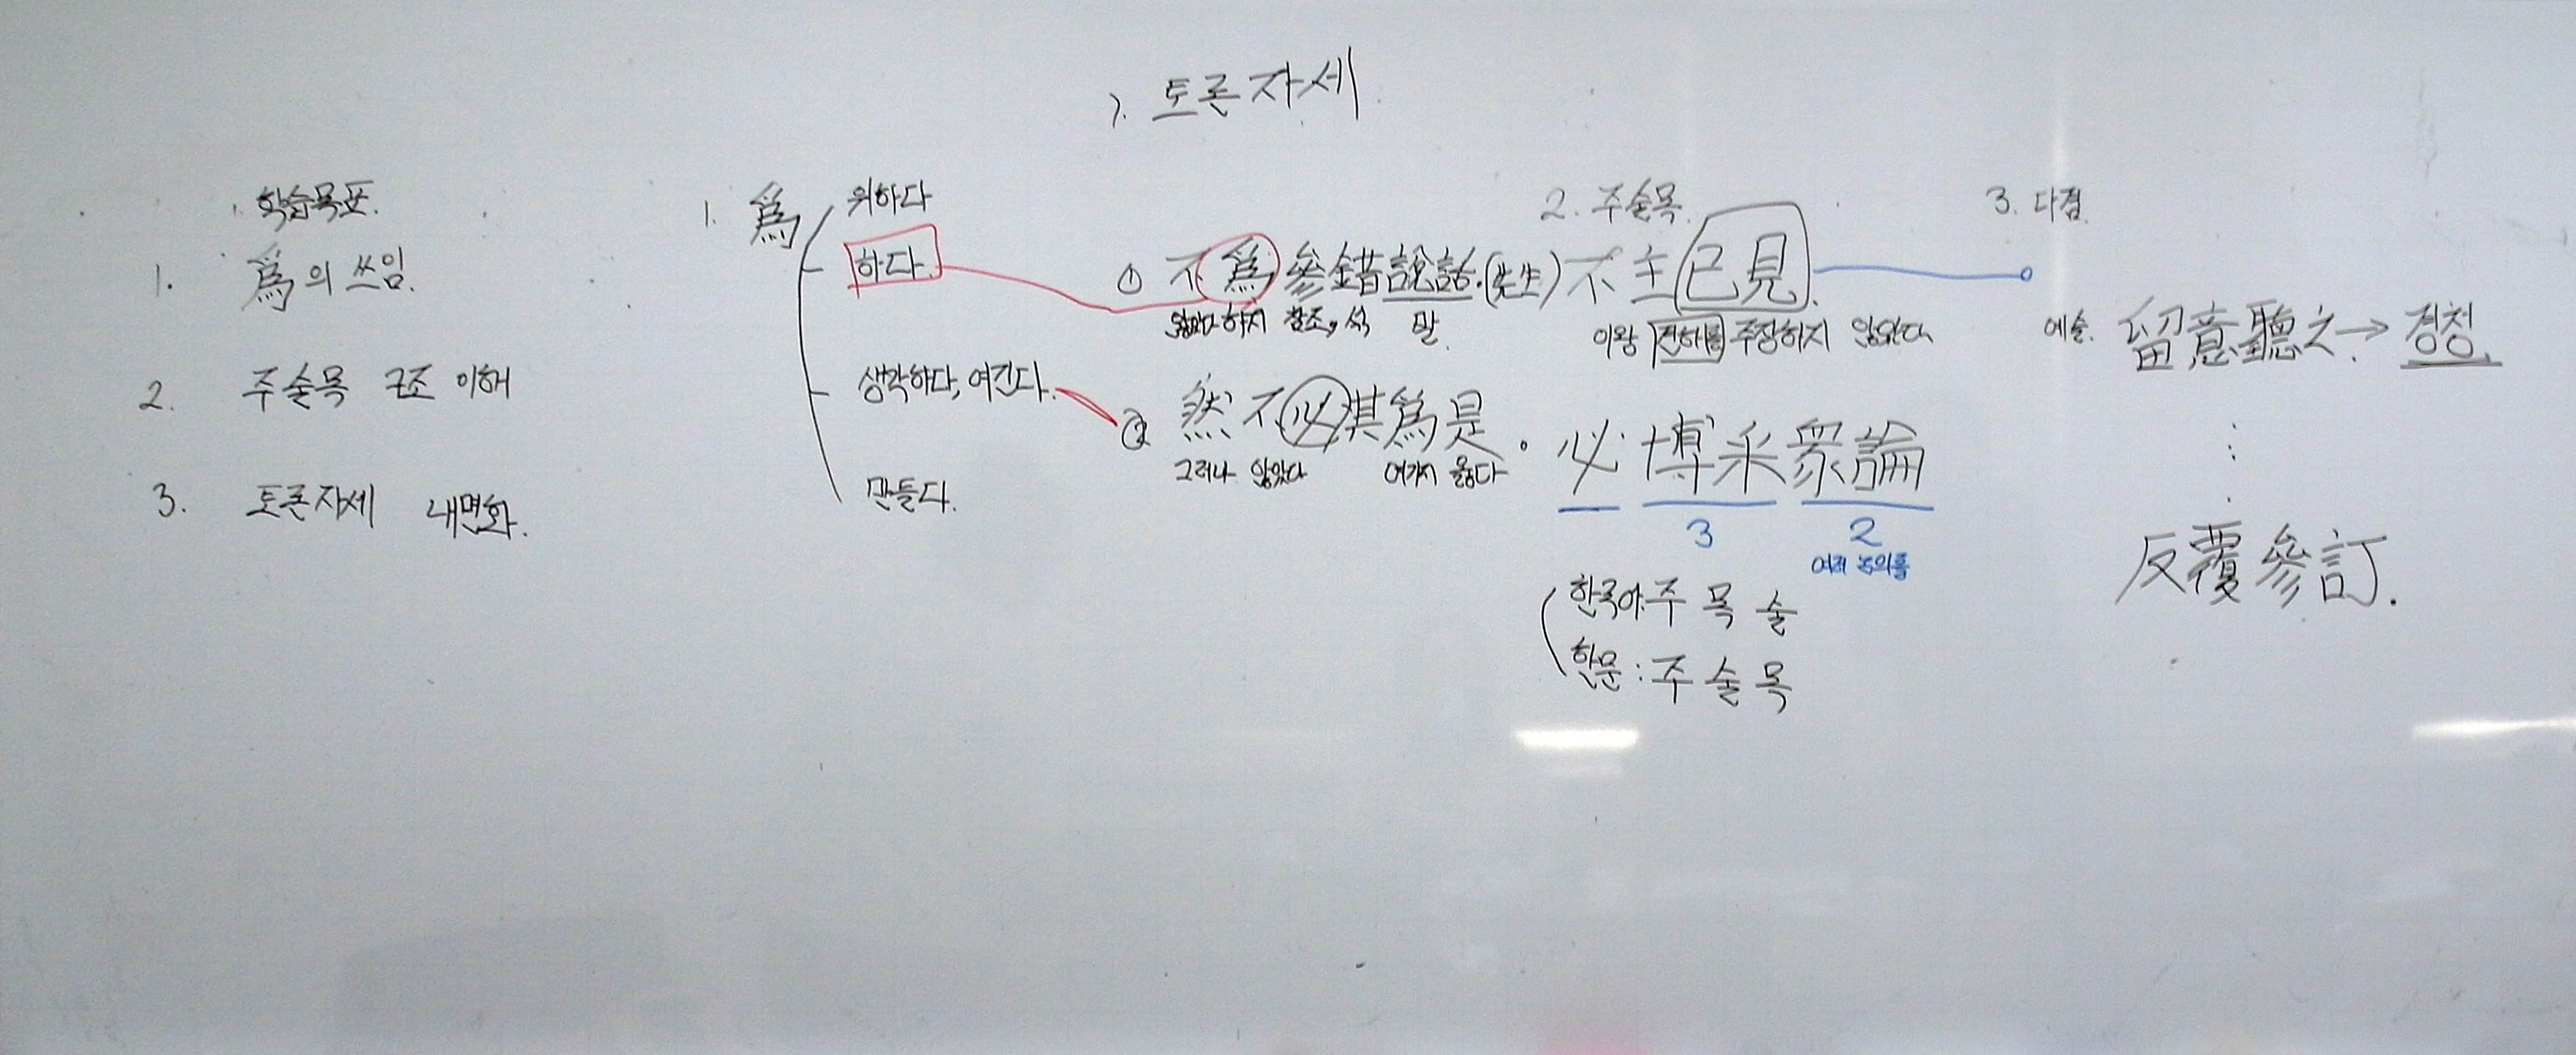 7. 토론자세
학습목표.
1. 爲의 쓰임.
2. 주술목 구조 이해
3. 토론자세 내면화.
1. 爲
위하다
하다.
생각하다, 여긴다.
만들다.
① 不爲參錯說話.(先生)
않았다 하지 말
② 然不必其爲是.
그러나 않았다 여기지 옳다
2. 주술목.
不主己見.
주장하지 않았다
必博采衆論
3 2
여러 논의를
한국어:주 목 술
한문:주 술 목
3. 다짐.
예술. 留意聽之.→경청.
⋮
反覆參訂.